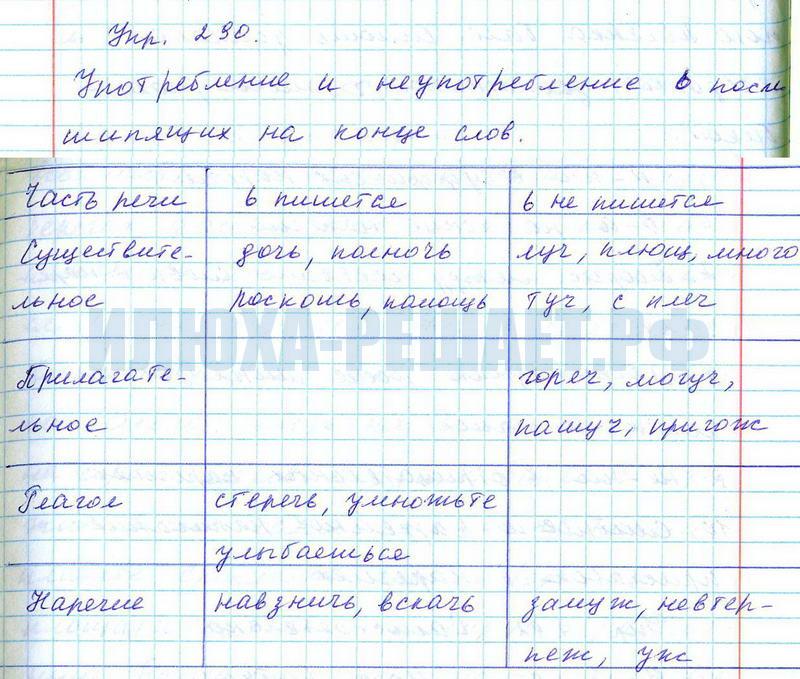 Упр. 290.
Употребление и неупотребление ь после
шипящих на конце слов.
Часть речи ь пишется ь не пишется
Существите- дочь, полночь луч, плющ, много
льное роскошь, помощь туч, с плеч
ИЛЮХА-РЕШАЕТ.РФ
Прилагате- горяч, могуч,
льное пашуч, пригож
Глагол стеречь, умножьте
улыбаешься
Наречие навзничь, вскачь замуж, невтер-
пеж, уж